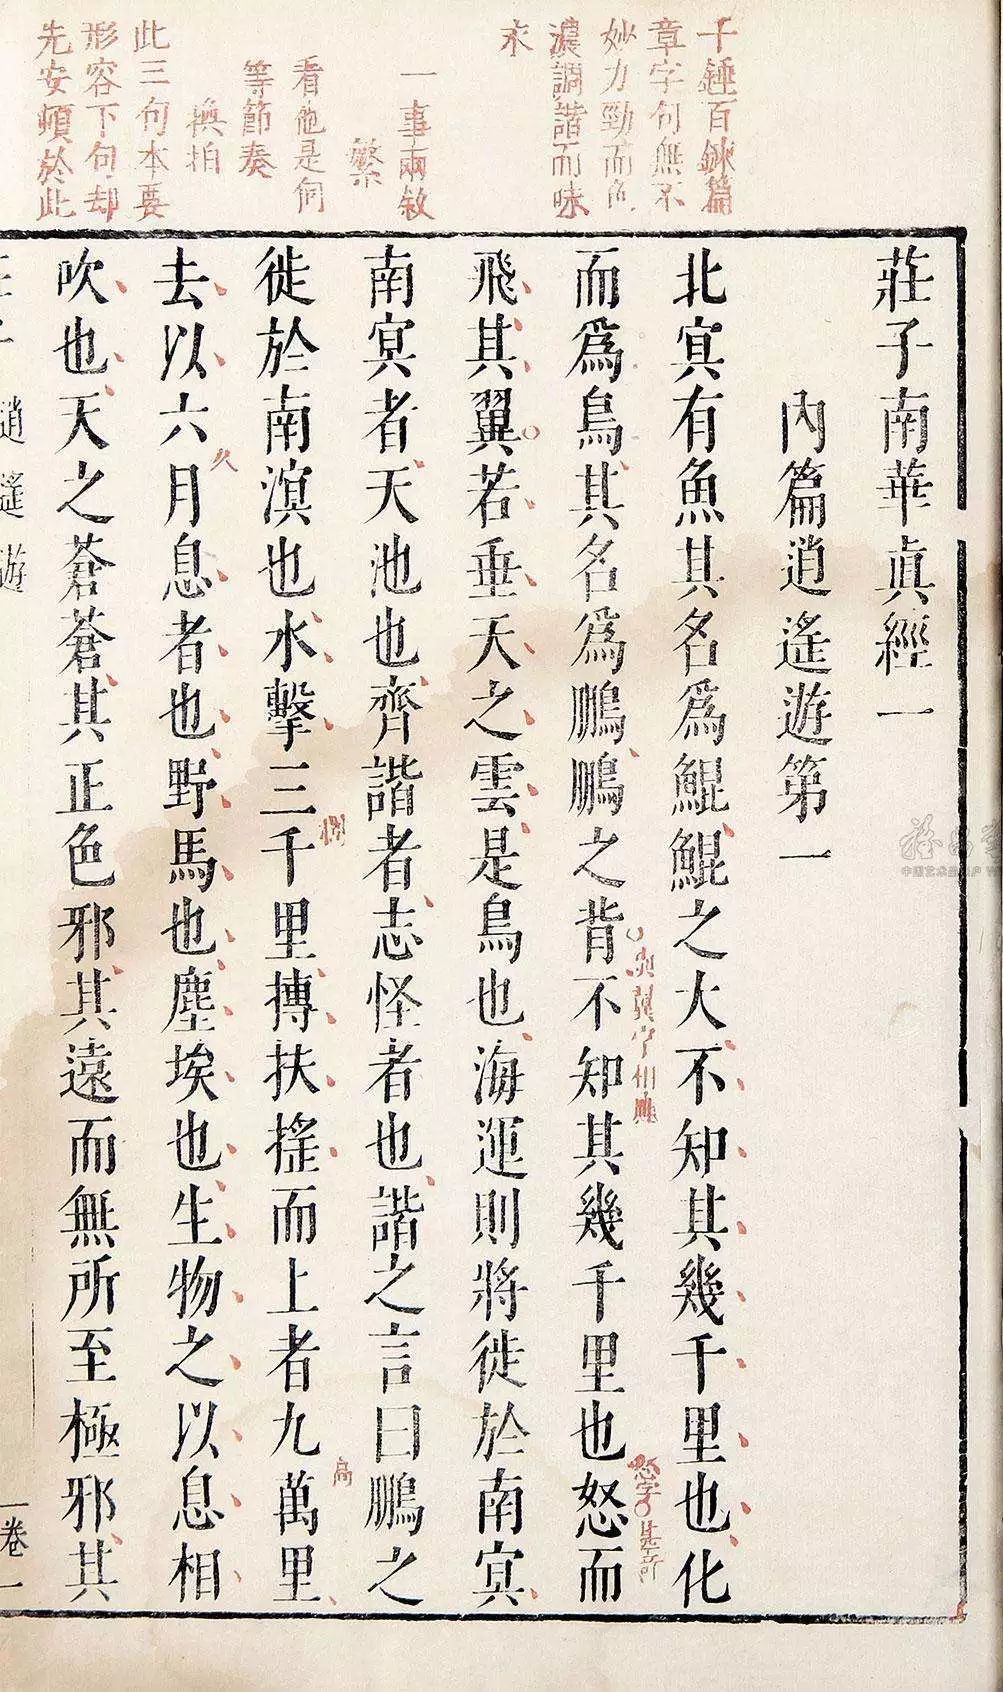 千錘百鍊篇
章字句無不
妙力勁而色
濃調諧而味
永
一事兩敘
繁
看他是何
等節奏
換拍
此三句本要
形容下句却
先安頓於此
莊子南華眞經一
內篇逍遙遊第一
北冥有魚其名爲鯤鯤之大不知其幾千里也化
而爲鳥其名爲鵬鵬之背不知其幾千里也怒而
飛其翼若垂天之雲是鳥也海運則將徙於南冥
南冥者天池也齊諧者志怪者也諧之言曰鵬之
徙於南溟也水擊三千里摶扶搖而上者九萬里
去以六月息者也野馬也塵埃也生物之以息相
吹也天之蒼蒼其正色邪其遠而無所至極邪其
翼字相應
怒字
闊
高
久
逍遙遊
卷一